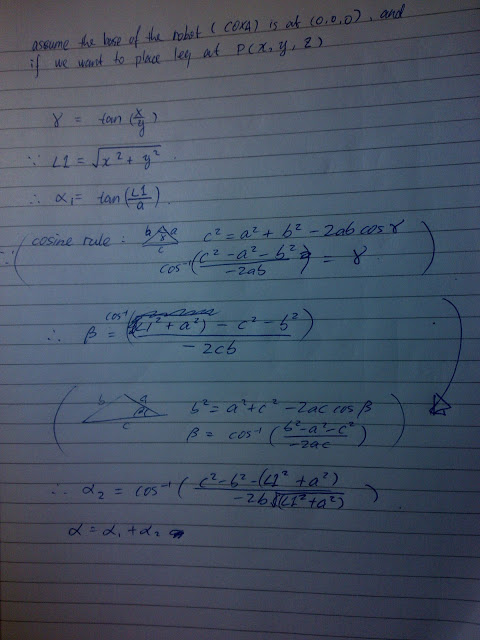 assume the base of the robot (COXA) is at (0,0,0), and
if we want to place leg at P(x, y, z)
γ = tan(x/y)
∵ L1 = √(x² + y²).
∴ α₁ = tan(L1/a).
∵ (cosine rule: b a γ c c² = a² + b² - 2ab cos γ
cos⁻¹((c² - a² - b²)/(-2ab)) = γ)
∴ β = cos⁻¹(((L1² + a²) - c² - b²)/(-2cb))
(b a c b² = a² + c² - 2ac cos β
β = cos⁻¹((b² - a² - c²)/(-2ac)))
∴ α₂ = cos⁻¹((c² - b² - (L1² + a²))/(-2b√(L1² + a²))).
α = α₁ + α₂